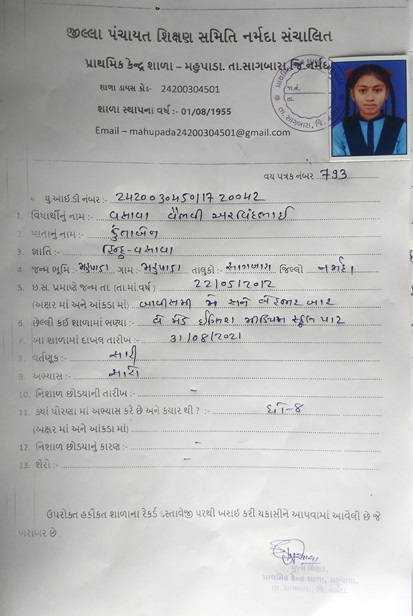 જીલ્લા પંચાયત શિક્ષણ સમિતિ નર્મદા સંચાલિત
પ્રાથમિક કેન્દ્ર શાળા – મહુપાડા. તા.સાગબારા,જિ.નર્મદા
શાળા ડાયસ કોડ- 24200304501
શાળા સ્થાપના વર્ષ :- 01/08/1955
Email – mahupada24200304501@gmail.com
વય પત્રક નંબર 793
યુ.આઈ.ડી નંબર :- 242003045011720042
1. વિદ્યાર્થીનું નામ :- વસાવા વૈભવી અરવિંદભાઈ
2. માતાનું નામ :-
3. જ્ઞાતિ :- હિન્દુ-વસાવા
4. જન્મ ભૂમિ :- મહુપાડા ગામ :- મહુપાડા તાલુકો :- સાગબારા જિલ્લો નર્મદા
5. છ.સ. પ્રમાણે જન્મ તા (તા માં વર્ષ) 22/05/2012
(અક્ષર માં અને આંકડા માં) બાવીસમી મે સને બે હજાર બાર
6. છેલ્લી કઈ શાળામાં ભણ્યા :- ઈંગ્લિશ મીડિયમ સ્કુલ પાટ
7. આ શાળામાં દાખલ તારીખ :- 31/08/2021
8. વર્તણૂક :- સારી
9. અભ્યાસ :- સારો
10. નિશાળ છોડયાની તારીખ :- –
11. ક્યાં ધોરણા માં અભ્યાસ કરે છે અને કયાર થી ? :- ધો-8
(અક્ષર માં અને આંકડા માં)
12. નિશાળ છોડયાનું કારણ :- –
13. શેરો :- –
ઉપરોક્ત હકીકત શાળાના રેકર્ડ દસ્તાવેજી પરથી ખરાઇ કરી ચકાસીને આપવામાં આવેલી છે જે
બરાબર છે
પ્રાથમિક કેન્દ્ર શાળા, મહુપાડા.
તા. સાગબારા, જિ. નર્મદા